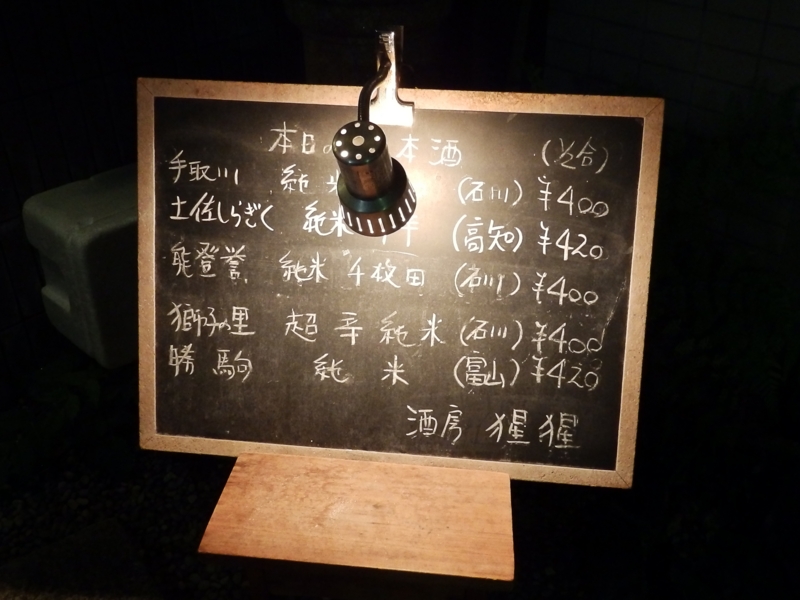 本日 本酒 (½合)
手取川 純米 (石川) ¥400
土佐しらぎく 純米 (高知) ¥420
能登誉 純米 千枚田 (石川) ¥400
獅子の里 超辛純米 (石川) ¥400
勝駒 純米 (富山) ¥420
酒房 猩猩